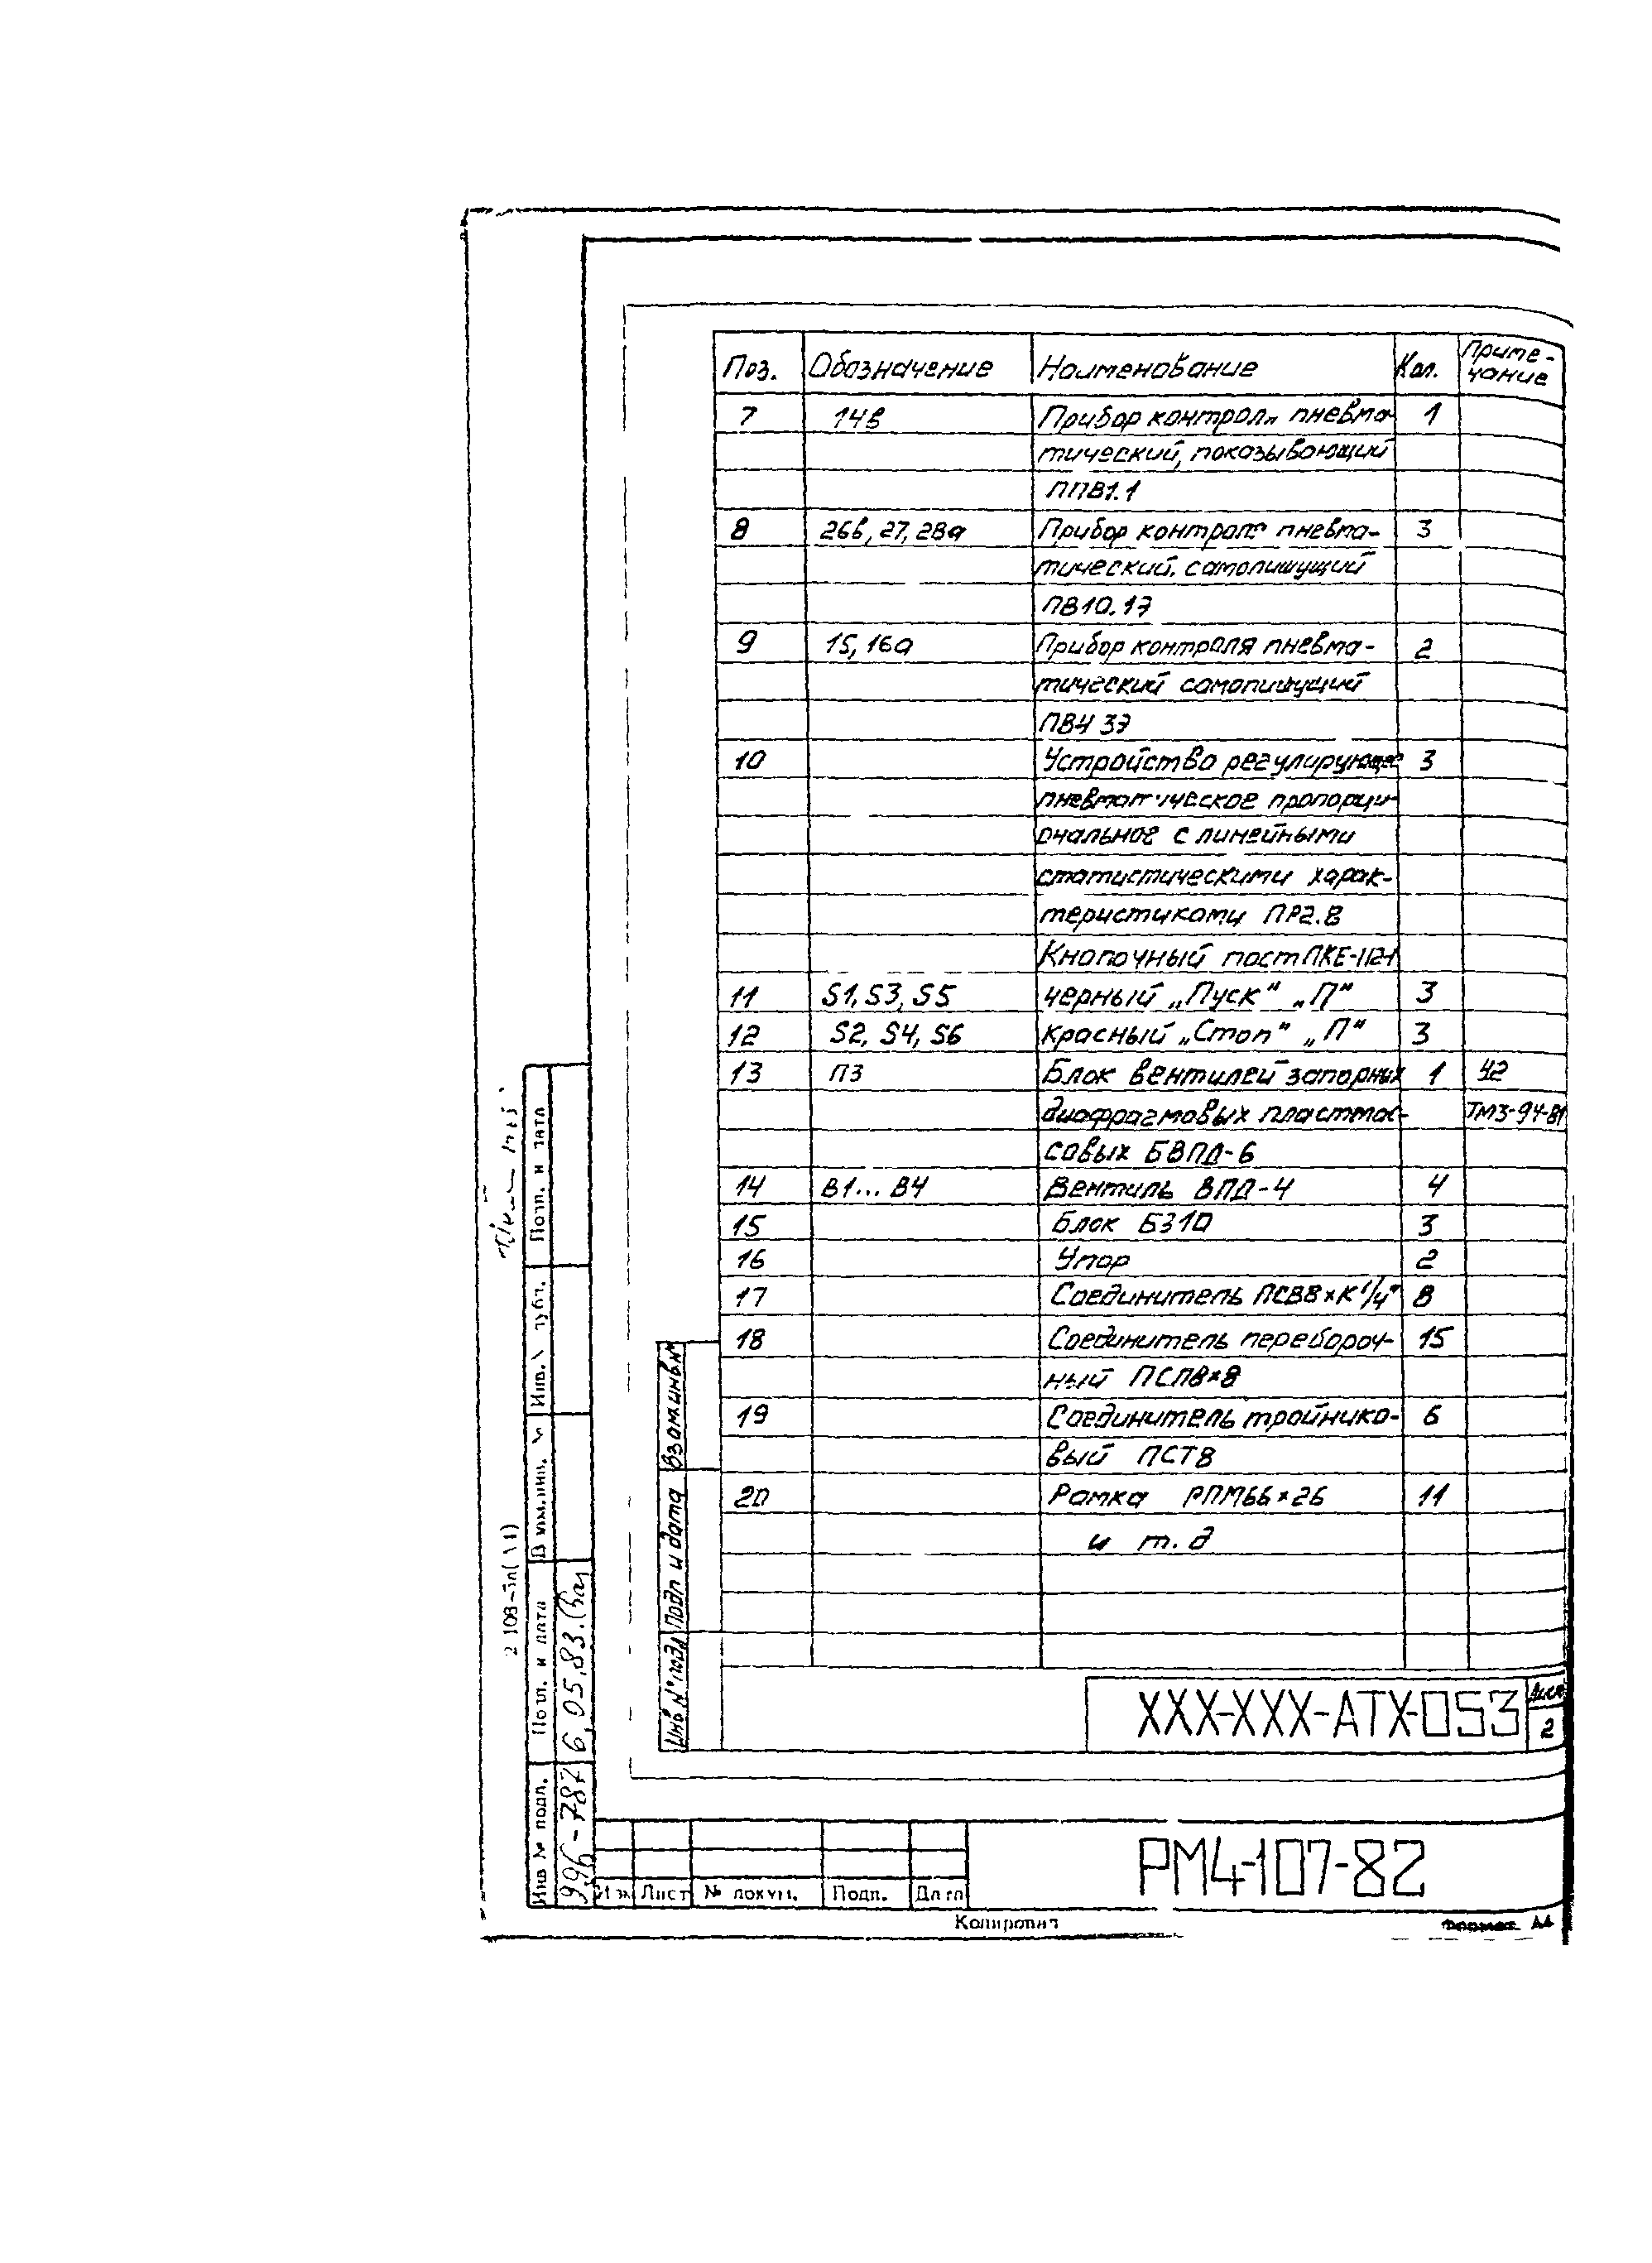 Поз. Обозначение Наименование Кол. Приме-
чание
7 14в Прибор контроля пневма- 1
тический, показывающий
ППВ1.1
8 26в, 27, 28а Прибор контроля пневма- 3
тический. самопишущий
ПВ10.1Э
9 15, 16а Прибор контроля пневма- 2
тический самопишущий
ПВ4 3Э
10 Устройство регулирующее 3
пневматическое пропорци-
ональное с линейными
статистическими харак-
теристиками ПР2.8
Кнопочный пост ПКЕ-112-1
11 S1, S3, S5 черный „Пуск“ „П“ 3
12 S2, S4, S6 красный „Стоп“ „П“ 3
13 П3 Блок вентилей запорных 1 Ч2
диафрагмовых пластмас- ТМ3-94-81
совых БВПД-6
14 В1... В4 Вентиль ВПД-4 4
15 Блок Б310 3
16 Упор 2
17 Соединитель ПСВ8×К1/4" 8
18 Соединитель перебороч- 15
ный ПСП8×8
19 Соединитель тройнико- 6
вый ПСТ8
20 Рамка РПМ66×26 11
и т. д
Инв № подл Подп и дата Взам.инв.№
XXX-XXX-АТХ-053 Лист
2
Инв № подл. Подп. и дата Взам.инв. № Инв. № дубл. Подп. и дата
996-787 6,05,83.
2 108-5а
РМ4-107-82
Изм Лист № докум. Подп. Дата
Копировал Формат А4